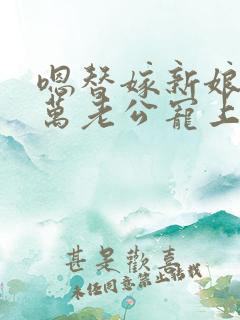 嗯替嫁新娘
萬老公寵上
甚是歡喜
未经同意禁止搭我